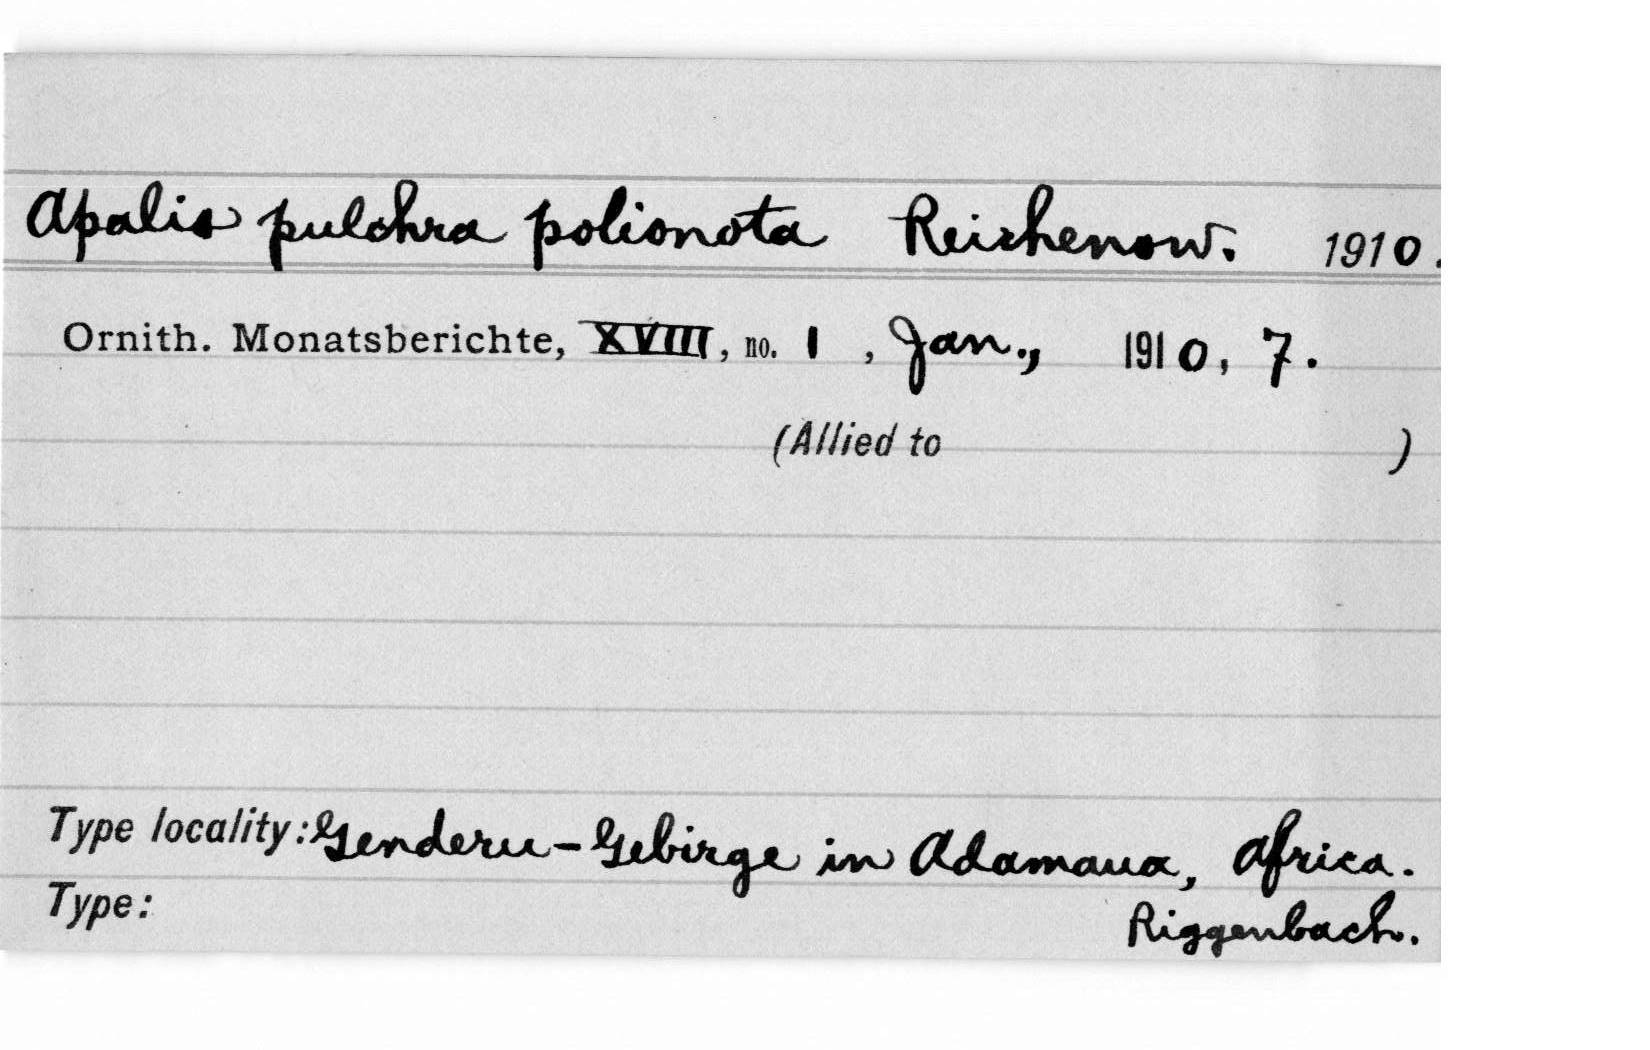 Apalis pulchra polionota Reichenow. 1910.
Ornith. Monatsberichte, XVIII, no. 1, Jan., 1910, 7.
(Allied to )
Type locality: Genderu-Gebirge in Adamaua, Africa.
Type: Riggenbach.